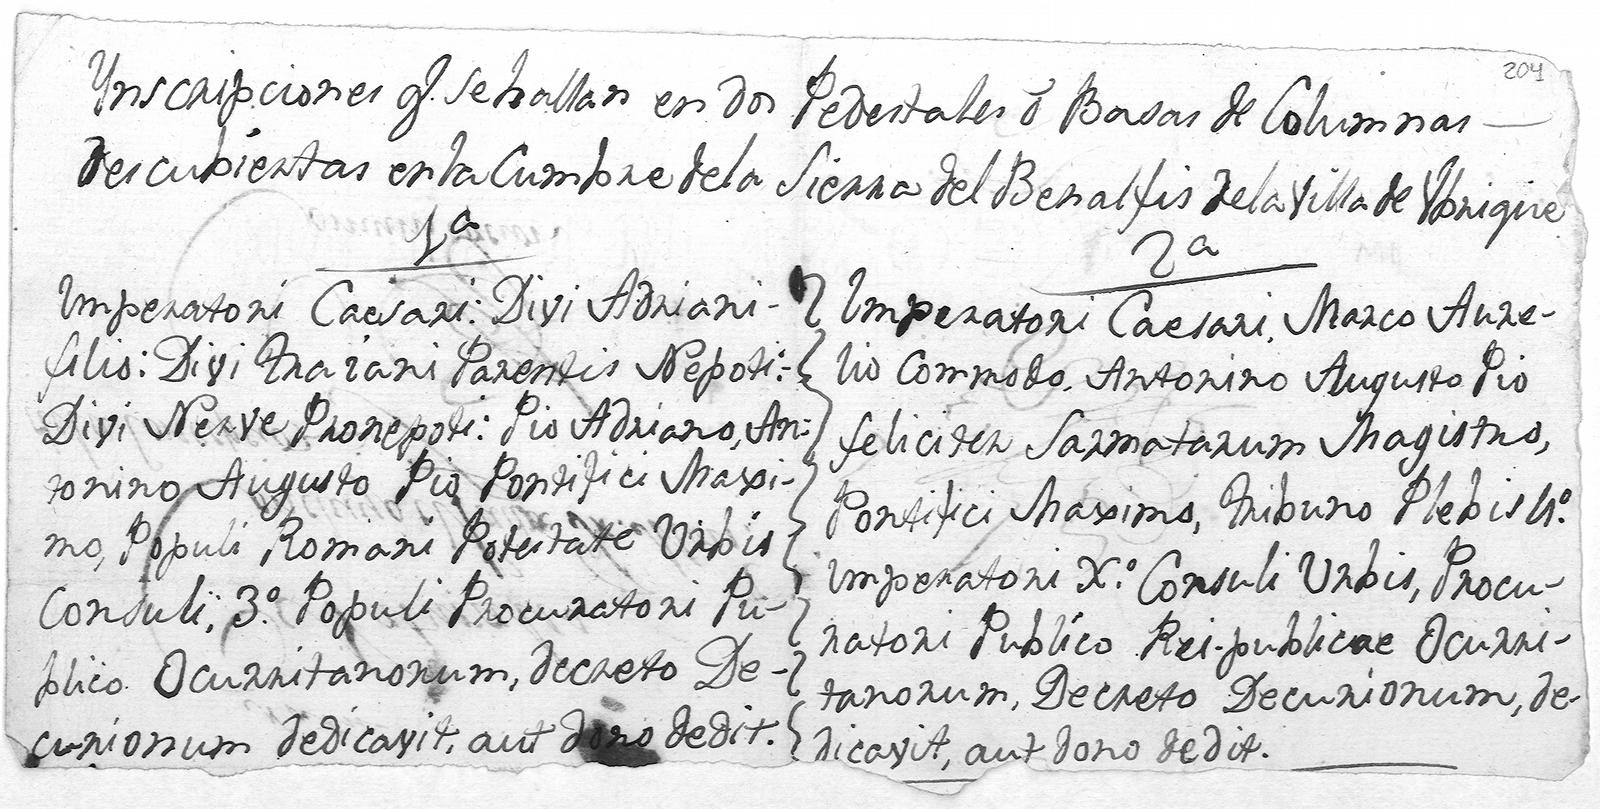 204
Ynscripciones q.e se hallan en dos Pedestales ó Basas de Columnas
descubiertas en la Cumbre de la Sierra del Benalfis de la Villa de Vbrique
1ª
Imperatori Caesari: Divi Adriani-
filio: Divi Traiani Parentis Nepoti:-
Divi Nerve Pronepoti: Pio Adriano, An-
tonino Augusto Pio Pontifici Maxi-
mo, Populi Romani Potestate Urbis
Consuli, 3.º Populi Procuratori Pu-
blico Ocurritanorum, decreto De-
curionum dedicavit, aut dono dedit.
2ª
Imperatori Caesari, Marco Aure-
lio Commodo, Antonino Augusto Pio
feliciter Sarmatarum Magistro,
Pontifici Maximo, Tribuno Plebis 4.º
Imperatori X.º Consuli Urbis, Procu-
ratori Publico Rei-publicae Ocurri-
tanorum, Decreto Decurionum, de-
dicavit, aut dono dedit.